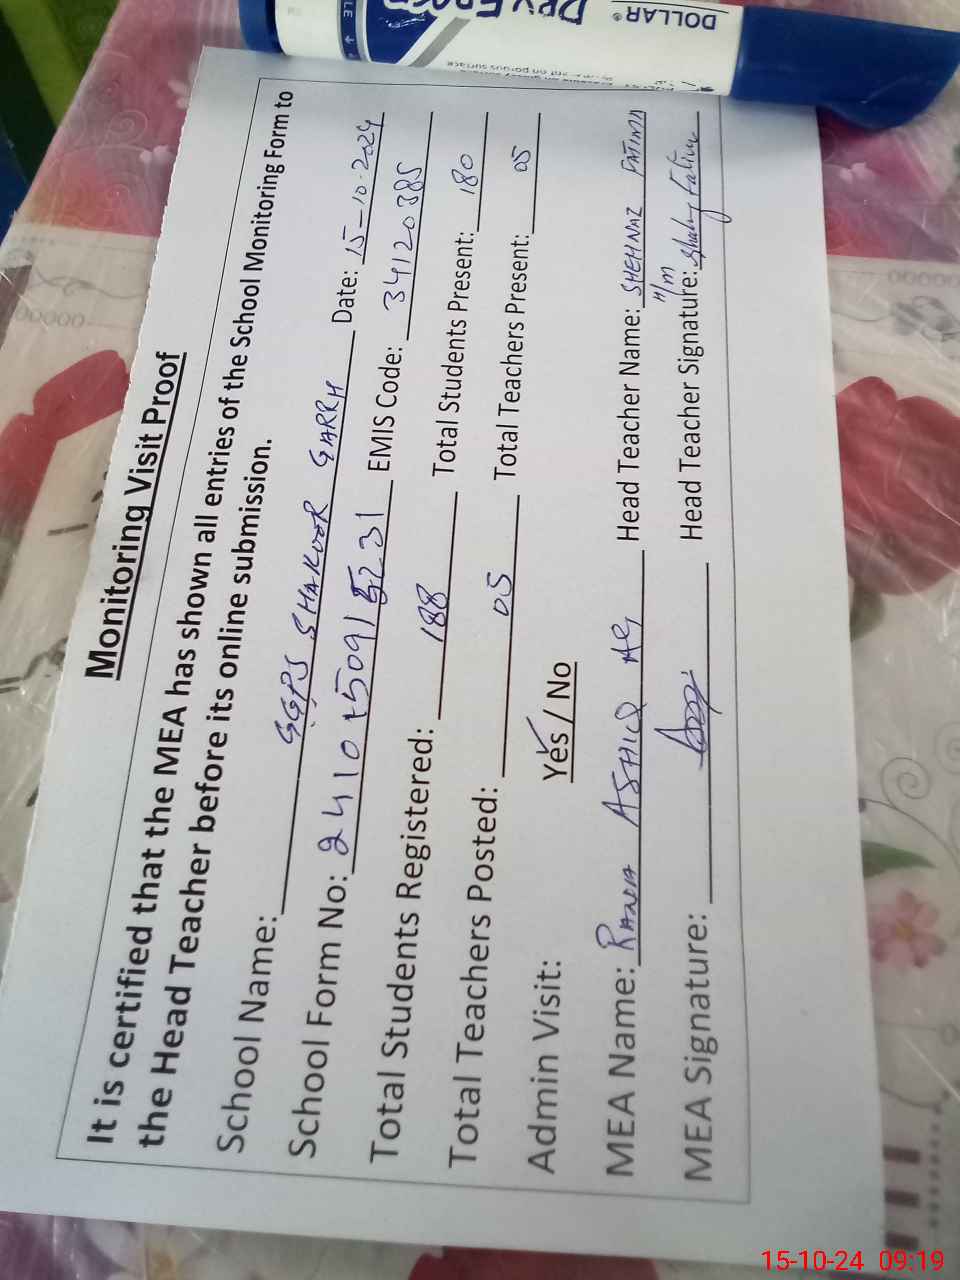 Monitoring Visit Proof
It is certified that the MEA has shown all entries of the School Monitoring Form to
the Head Teacher before its online submission.
School Name: GGPS SHAKOOR GARRH Date: 15-10-2024
School Form No: EMIS Code: 34120385
Total Students Registered: 188 Total Students Present: 180
Total Teachers Posted: 05 Total Teachers Present: 05
Admin Visit: Yes / No
MEA Name: ASHIQ Head Teacher Name: SHEHNAZ FATIMA
H/M
MEA Signature: Head Teacher Signature: Fatima
DOLLAR®
DRY ERASE
15-10-24 09:19